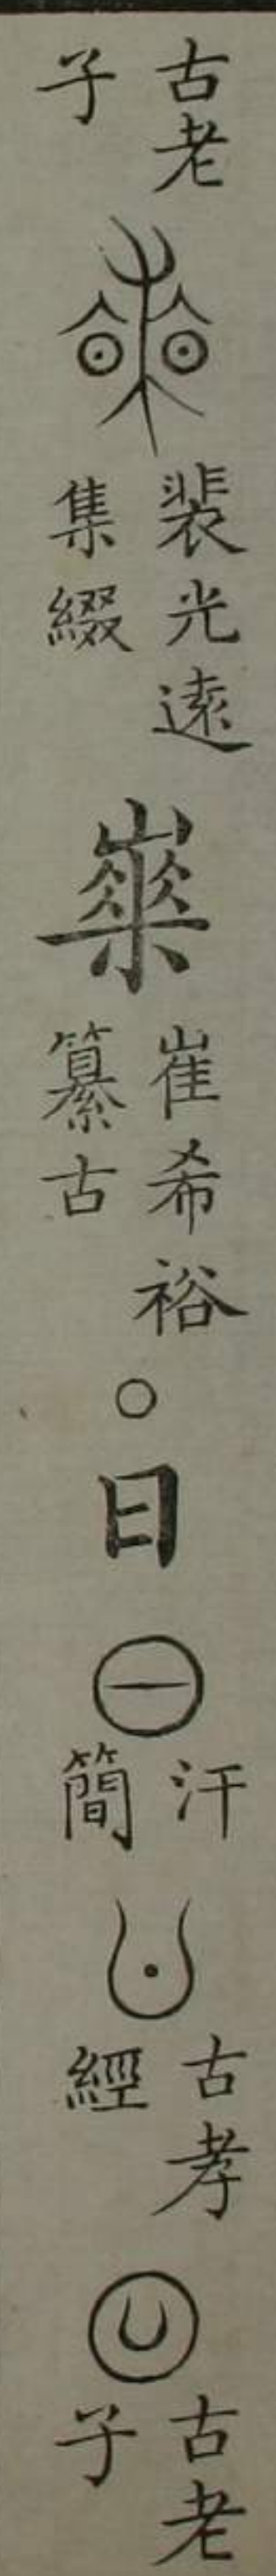 古老
子
裴光遠
集綴
崔希裕
纂古
○日
汗
簡
古孝
經
古老
子